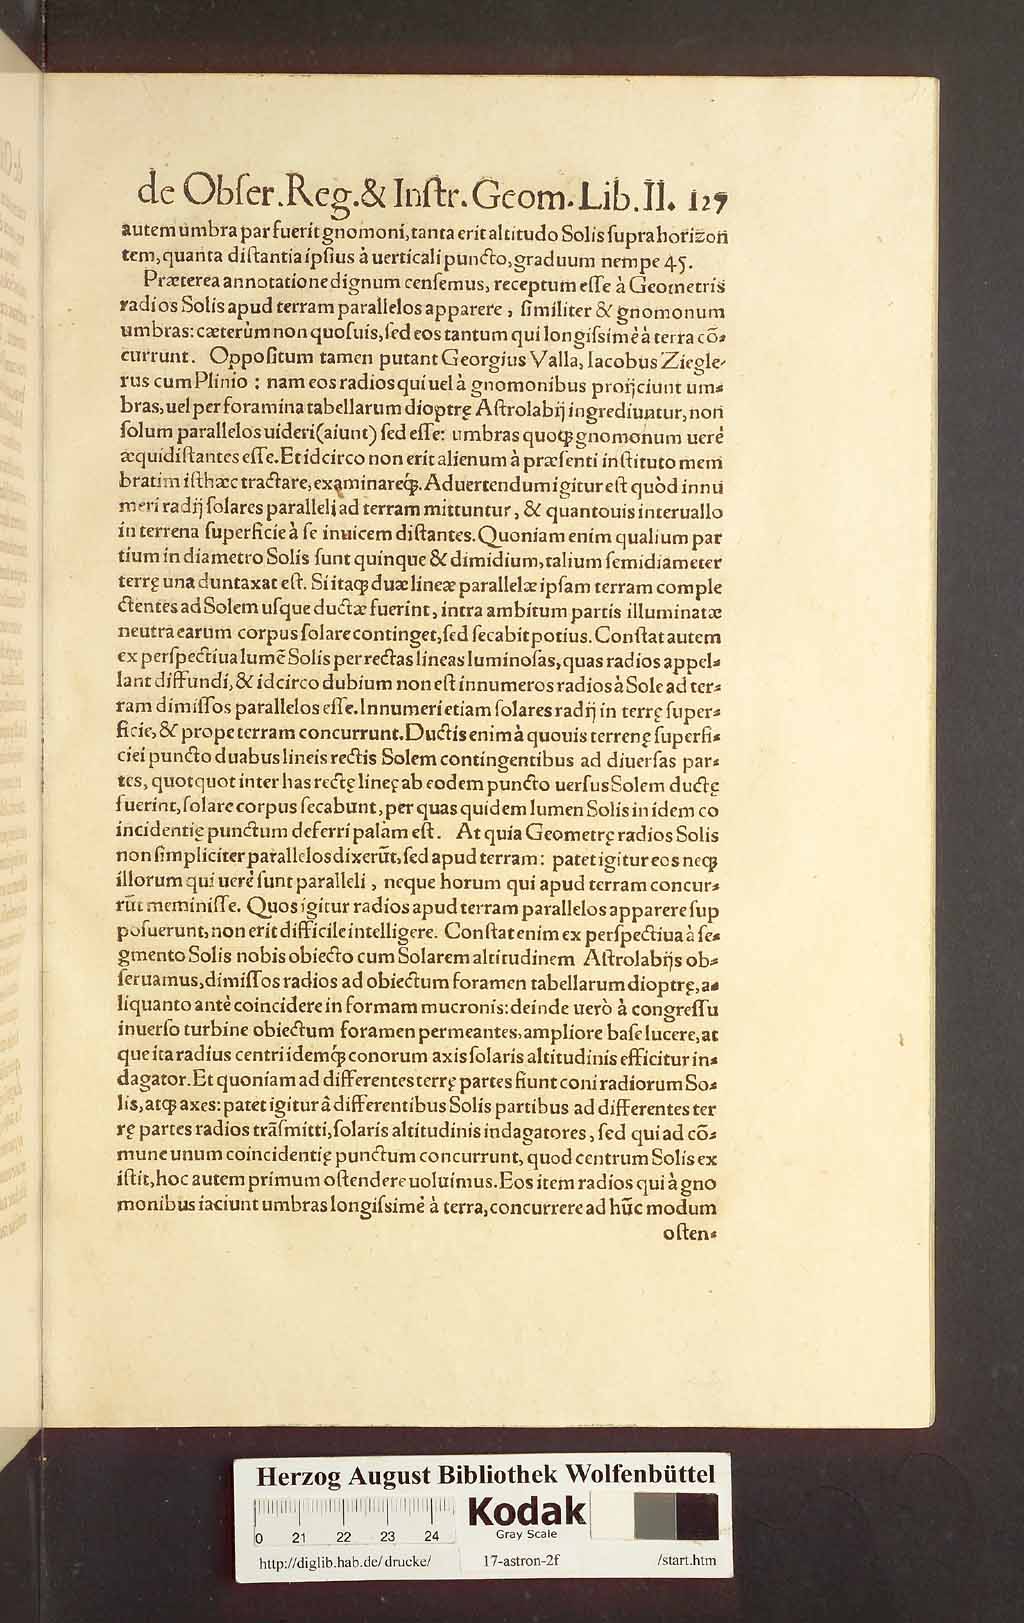 de Obſer. Reg. & Inſtr. Geom. Lib. II. 127
autem umbra par fuerit gnomoni, tanta erit altitudo Solis ſupra horizon
tem, quanta diſtantia ipſius à uerticali puncto, graduum nempe 45.
Præterea annotatione dignum cenſemus, receptum eſſe à Geometris
radios Solis apud terram parallelos apparere, ſimiliter & gnomonum
umbras: cæterùm non quoſuis, ſed eos tantum qui longiſsimè à terra cõ⸗
currunt. Oppoſitum tamen putant Georgius Valla, Iacobus Ziegle⸗
rus cum Plinio: nam eos radios qui uel à gnomonibus proijciunt um⸗
bras, uel per foramina tabellarum dioptrę Aſtrolabij ingrediuntur, non
ſolum parallelos uideri (aiunt) ſed eſſe: umbras quoqꝫ gnomonum uerè
æquidiſtantes eſſe. Et idcirco non erit alienum à præſenti inſtituto mem
bratim iſthæc tractare, examinareqꝫ. Aduertendum igitur eſt quòd innu
meri radij ſolares paralleli ad terram mittuntur, & quantouis interuallo
in terrena ſuperficie à ſe inuicem diſtantes. Quoniam enim qualium par
tium in diametro Solis ſunt quinque & dimidium, talium ſemidiameter
terrę una duntaxat eſt. Si itaqꝫ duæ lineæ parallelæ ipſam terram comple
ctentes ad Solem uſque ductæ fuerint, intra ambitum partis illuminatæ
neutra earum corpus ſolare continget, ſed ſecabit potius. Conſtat autem
ex perſpectiua lumē Solis per rectas lineas luminoſas, quas radios appel⸗
lant diffundi, & idcirco dubium non eſt innumeros radios à Sole ad ter⸗
ram dimiſſos parallelos eſſe. Innumeri etiam ſolares radij in terrę ſuper⸗
ficie, & prope terram concurrunt. Ductis enim à quouis terrenę ſuperfi⸗
ciei puncto duabus lineis rectis Solem contingentibus ad diuerſas par⸗
tes, quotquot inter has rectę lineę ab eodem puncto uerſus Solem ductę
fuerint, ſolare corpus ſecabunt, per quas quidem lumen Solis in idem co
incidentię punctum deferri palàm eſt. At quia Geometrę radios Solis
non ſimpliciter parallelos dixerūt, ſed apud terram: patet igitur eos neqꝫ
illorum qui uerè ſunt paralleli, neque horum qui apud terram concur⸗
rūt meminiſſe. Quos igitur radios apud terram parallelos apparere ſup
poſuerunt, non erit difficile intelligere. Conſtat enim ex perſpectiua à ſe⸗
gmento Solis nobis obiecto cum Solarem altitudinem Aſtrolabijs ob⸗
ſeruamus, dimiſſos radios ad obiectum foramen tabellarum dioptrę, a⸗
liquanto antè coincidere in formam mucronis: deinde uerò à congreſſu
inuerſo turbine obiectum foramen permeantes, ampliore baſe lucere, at
que ita radius centri idemqꝫ conorum axis ſolaris altitudinis efficitur in⸗
dagator. Et quoniam ad differentes terrę partes fiunt coni radiorum So⸗
lis, atqꝫ axes: patet igitur à differentibus Solis partibus ad differentes ter
rę partes radios trāſmitti, ſolaris altitudinis indagatores, ſed qui ad cõ⸗
mune unum coincidentię punctum concurrunt, quod centrum Solis ex
iſtit, hoc autem primum oſtendere uoluimus. Eos item radios qui à gno
monibus iaciunt umbras longiſsimè à terra, concurrere ad hūc modum
oſten⸗
Herzog August Bibliothek Wolfenbüttel
Kodak
Gray Scale
0 21 22 23 24
http://diglib.hab.de/drucke/ 17-astron-2f /start.htm